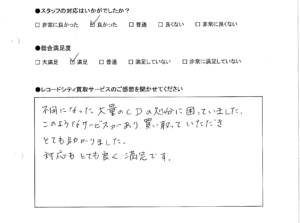 ●スタッフの対応はいかがでしたか？
□非常に良かった ☑良かった □普通 □良くない □非常に良くない
●総合満足度
□大満足 ☑満足 □普通 □満足していない □非常に満足していない
●レコードシティ買取サービスのご感想を聞かせてください
不用になった大量のCDの処分に困っていました。
このようなサービスがあり買い取っていただき
とても助かりました。
対応もとても良く満足です。